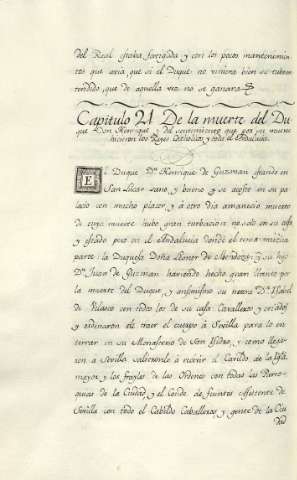 del Real estaba fatigada y con los pocos mantenimien
tos que avia, que si el Duque no viniera bien se tubiera
rendido, que de aquella vez no se ganara.
Capitulo 21. De la muerte del Du
que Don Henrique, y del sentimiento que por su muerte
hicieron los Reyes Catholicos y toda el Andalucia.
El Duque Dn. Henrique de Guzman estando en
San Lucar sano, y bueno y se acostó en su pa
lacio con mucho plazer, y á otro dia amaneció muerto
de cuya muerte hubo gran turbacion no solo en su casa
y estado pero en el Andalucia donde el tenia mucha
parte: la Duquesa Doña Leonor de Mendoza, y su hijo
Dn. Juan de Guzman haviendo hecho gran llanto por
la muerte del Duque, y ansimismo su nuera Da. Isabel
de Velasco con todos los de su casa Cavalleros y criados
y ordenaron de traer el cuerpo á Sevilla para lo en
terrar en su Monasterio de San Isidro, y como llega
ron a Sevilla salieronle á recivir el Cavildo de la Igla.
mayor, y los frayles de las Ordenes con todas las Parro
quias de la Ciudad, y el Conde de fuentes Asistente de
Sevilla con todo el Cabildo Cavalleros, y gente de la Ciu
dad